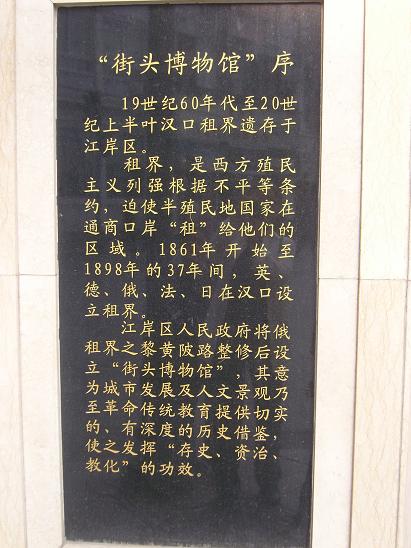 “街头博物馆”序
19世纪60年代至20世
纪上半叶汉口租界遗存于
江岸区。
租界，是西方殖民
主义列强根据不平等条
约，迫使半殖民地国家在
通商口岸“租”给他们的
区域。1861年开始至
1898年的37年间，英、
德、俄、法、日在汉口设
立租界。
江岸区人民政府将俄
租界之黎黄陂路整修后设
立“街头博物馆”，其意
为城市发展及人文景观乃
至革命传统教育提供切实
的、有深度的历史借鉴，
使之发挥“存史、资治、
教化”的功效。